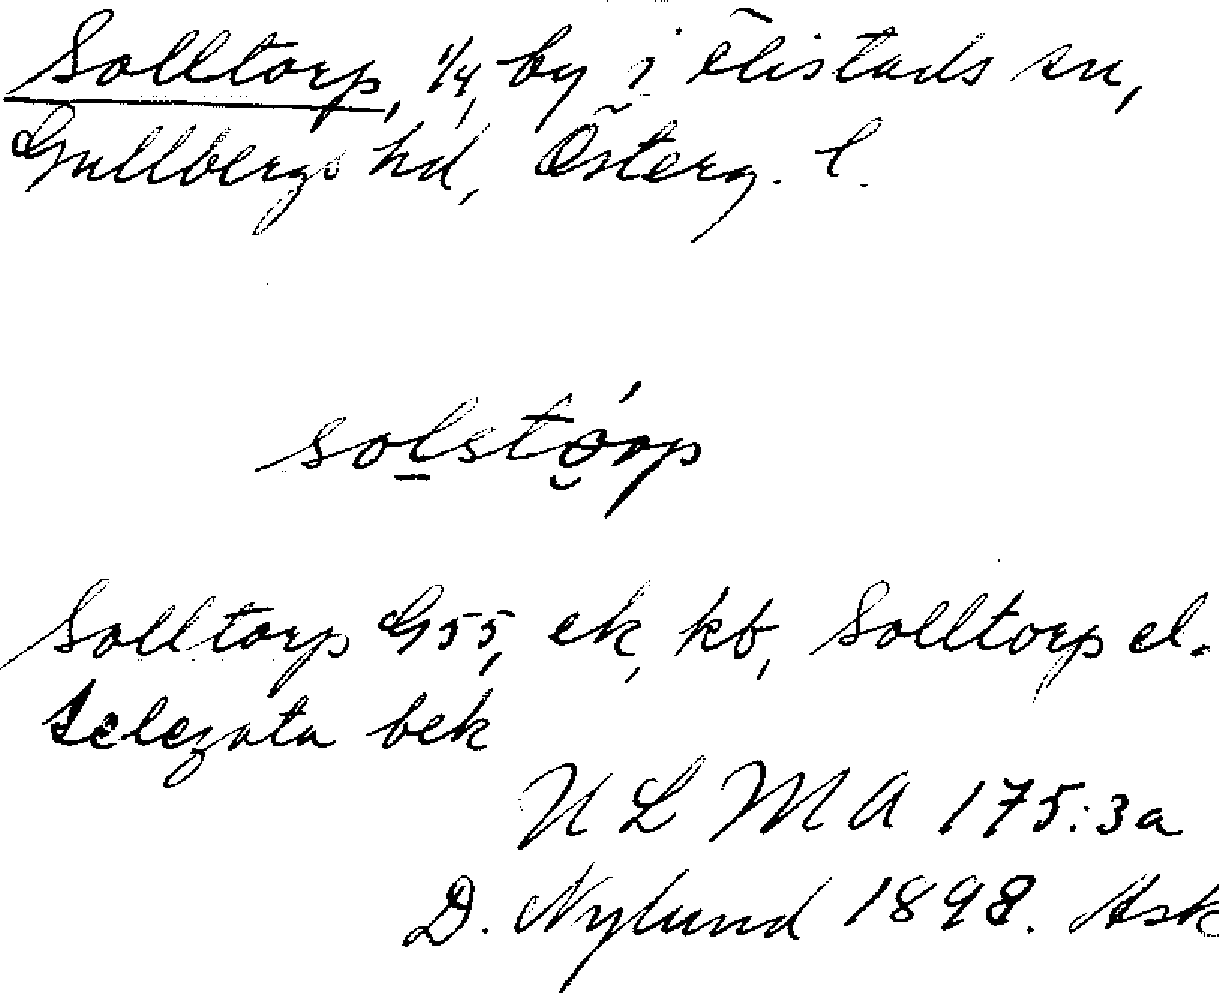 Solltorp, 1/4, by i Älistads sn,
Gullbergs hd, Österg. l.
solstorp
Solltorp G55, ek, kb, Solltorp el.
bek
ULMA 175:3a
D. Nylund 1898. Ask